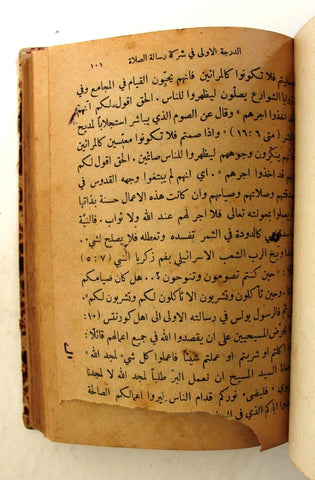 الدرجة الاولى في شركة رسالة الصلاة
١٠١
صليتم فلا تكونوا كالمرائين فانهم يحبّون القيام في المجامع وفي
زوايا الشوارع يصلّون ليظهروا للناس. الحق اقول لكم انهم
قد اخذوا اجرهم» وقال عن الصوم الذي يباشر استجلابًا لمديح
(متى ٦: ١٦) «واذا صمتم فلا تكونوا معبّسين كالمرائين
ينكّرون وجوههم ليظهروا للناس صائمين. الحق اقول لكم
قد اخذوا اجرهم». اي انهم لم يبتغوا وجهه القدوس في
وصلاتهم وصيامهم وان كانت هذه الاعمال حسنة بذاتها
بمعونته تعالى فلا اجر لهم عند الله ولا ثواب. فالنيّة
كالدودة في الثمر تفسده وتعطله فلا يصلح لشيء.
وبخ الرب الشعب الاسرائيلي بفم زكريا النبي (٧: ٥)
«حين كنتم تصومون وتنوحون ... هل كان صيامكم
وحين تأكلون وتشربون الا تأكلون لكم وتشربون لكم».
ثم فالرسول بولس في رسالته الاولى الى اهل كورنثس (١٠:
يحرض المسيحيين على ان يقصدوا الله في جميع اعمالهم قائلًا:
كلتم او شربتم او عملتم شيئًا فاعملوا كل شيء لمجد الله»
السيد المسيح ان نعمل البرّ طلبًا لمجد الله لا لمجدنا
«فليضئ نوركم قدام الناس ليروا اعمالكم الصالحة
اباكم الذي في